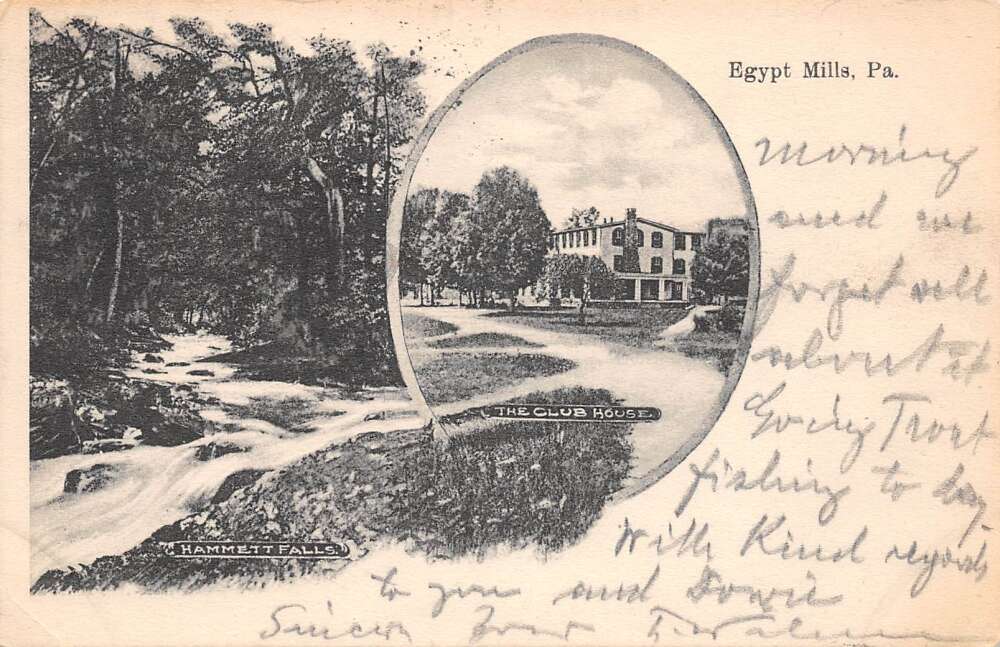 Egypt Mills, Pa.
Morning
and we
forget all
about it
Going Trout
fishing to day
With Kind regards
to you and Dowie
THE CLUB HOUSE.
HAMMETT FALLS.